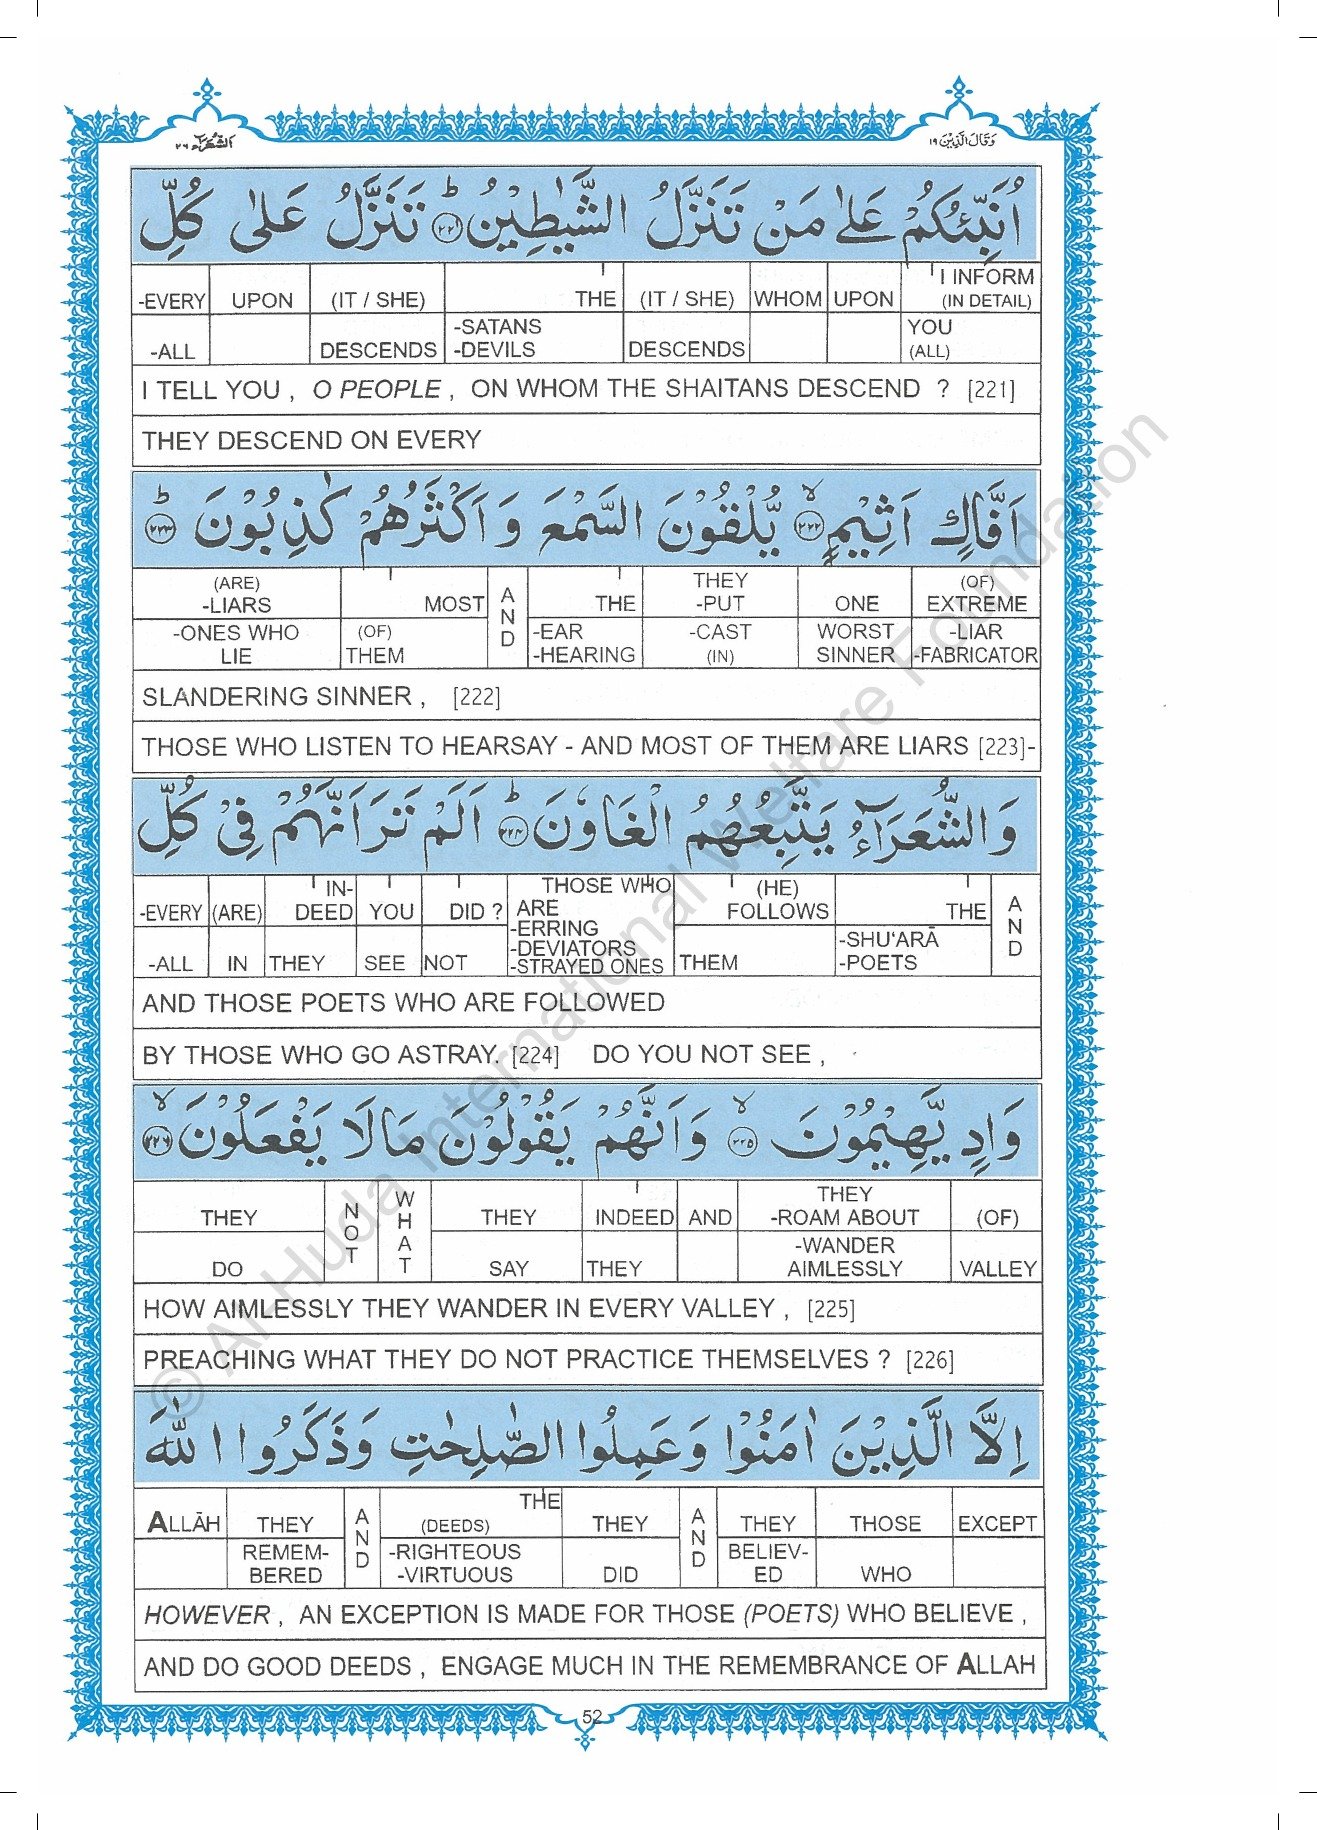 اَلشُّعَرَآء ٢٦ وَقَالَ الَّذِيْنَ ١٩
اُنَبِّئُكُمْ عَلٰى مَنْ تَنَزَّلُ الشَّيٰطِيْنُ ؕ ﴿٢٢١﴾ تَنَزَّلُ عَلٰى كُلِّ
-EVERY UPON (IT / SHE) THE (IT / SHE) WHOM UPON I INFORM (IN DETAIL)
-ALL DESCENDS -SATANS -DEVILS DESCENDS YOU (ALL)
I TELL YOU , O PEOPLE , ON WHOM THE SHAITANS DESCEND ? [221]
THEY DESCEND ON EVERY
اَفَّاكٍ اَثِيْمٍ ۙ ﴿٢٢٢﴾ يُّلْقُوْنَ السَّمْعَ وَ اَكْثَرُهُمْ كٰذِبُوْنَ ؕ ﴿٢٢٣﴾
(ARE) -LIARS MOST AND THE THEY -PUT ONE (OF) EXTREME
-ONES WHO LIE (OF) THEM -EAR -HEARING -CAST (IN) WORST SINNER -LIAR -FABRICATOR
SLANDERING SINNER , [222]
THOSE WHO LISTEN TO HEARSAY - AND MOST OF THEM ARE LIARS [223]-
وَالشُّعَرَآءُ يَتَّبِعُهُمُ الْغَاوٗنَ ؕ ﴿٢٢٤﴾ اَلَمْ تَرَ اَنَّهُمْ فِيْ كُلِّ
-EVERY (ARE) IN-DEED YOU DID ? THOSE WHO ARE (HE) FOLLOWS THE AND
-ALL IN THEY SEE NOT -ERRING -DEVIATORS -STRAYED ONES THEM -SHU‘ARĀ -POETS
AND THOSE POETS WHO ARE FOLLOWED
BY THOSE WHO GO ASTRAY. [224] DO YOU NOT SEE ,
وَادٍ يَّهِيْمُوْنَ ۙ ﴿٢٢٥﴾ وَاَنَّهُمْ يَقُوْلُوْنَ مَا لَا يَفْعَلُوْنَ ۙ ﴿٢٢٦﴾
THEY NOT WHAT THEY INDEED AND THEY -ROAM ABOUT (OF)
DO SAY THEY -WANDER AIMLESSLY VALLEY
HOW AIMLESSLY THEY WANDER IN EVERY VALLEY , [225]
PREACHING WHAT THEY DO NOT PRACTICE THEMSELVES ? [226]
اِلَّا الَّذِيْنَ اٰمَنُوْا وَعَمِلُوا الصّٰلِحٰتِ وَذَكَرُوا اللّٰهَ
ALLĀH THEY AND THE (DEEDS) THEY AND THEY THOSE EXCEPT
REMEM-BERED -RIGHTEOUS -VIRTUOUS DID BELIEV-ED WHO
HOWEVER , AN EXCEPTION IS MADE FOR THOSE (POETS) WHO BELIEVE ,
AND DO GOOD DEEDS , ENGAGE MUCH IN THE REMEMBRANCE OF ALLAH
52
© Al-Huda International Welfare Foundation